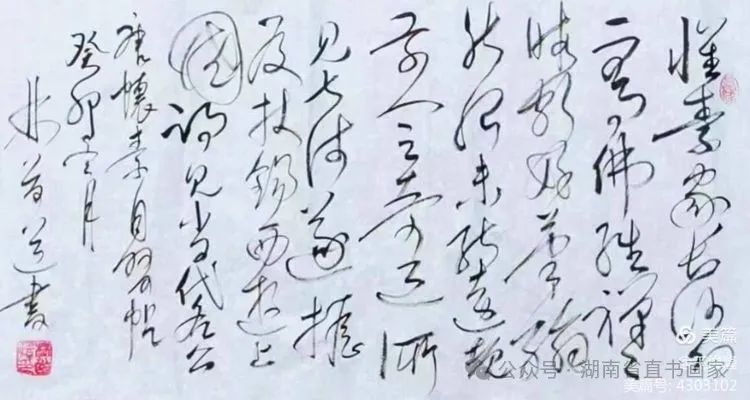 懷素家长沙幼
而事佛經禪之
暇頗好筆翰
然恨未能遠覩
前人之奇迹所
見甚浅遂擔
笈杖錫西遊上
國謁見當代名公
唐懷素自敘帖
癸卯 月
道書
美篇
公众号·湖南省直书画家
美篇号: 4303102